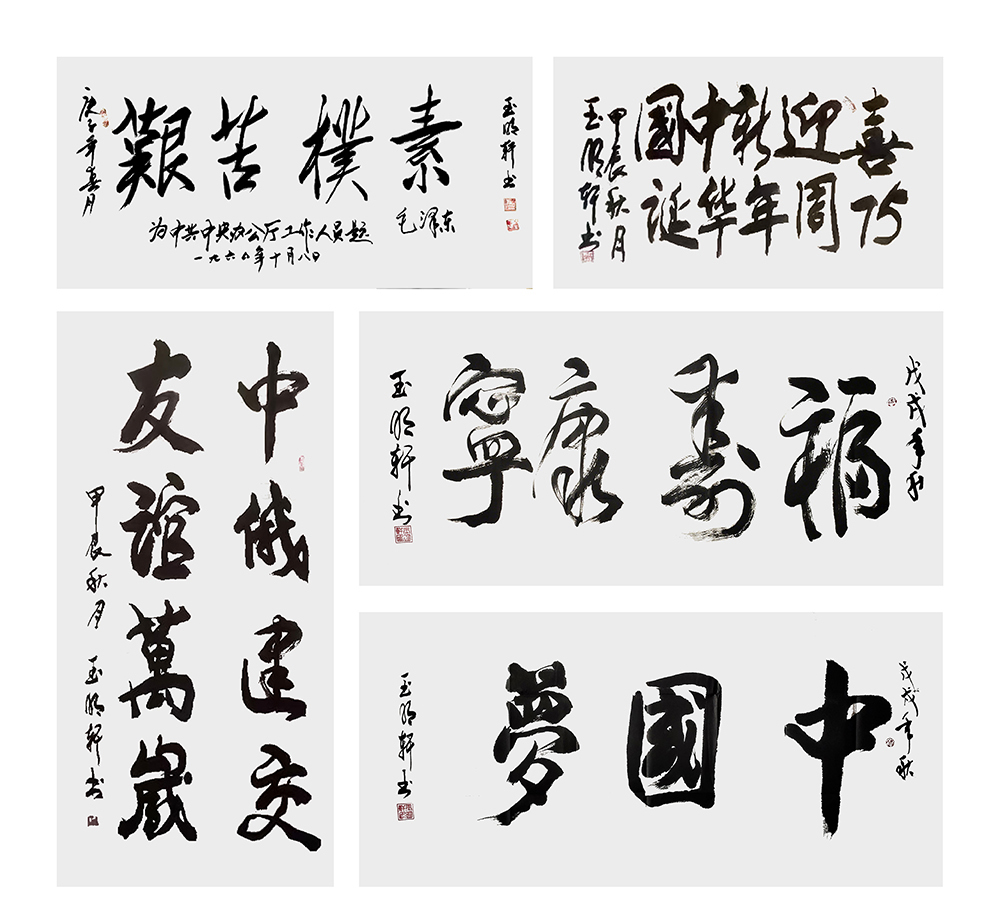 庚子年春月
艱苦樸素
毛泽东
为中共中央办公厅工作人员题
一九六〇年十月八日
玉明轩书
喜迎新中國
75周年华誕
甲辰秋月
玉明轩书
中俄建交
友誼萬歲
甲辰秋月 玉明轩书
戊戌年秋
福寿康寧
玉明轩书
戊戌年秋
中國夢
玉明轩书